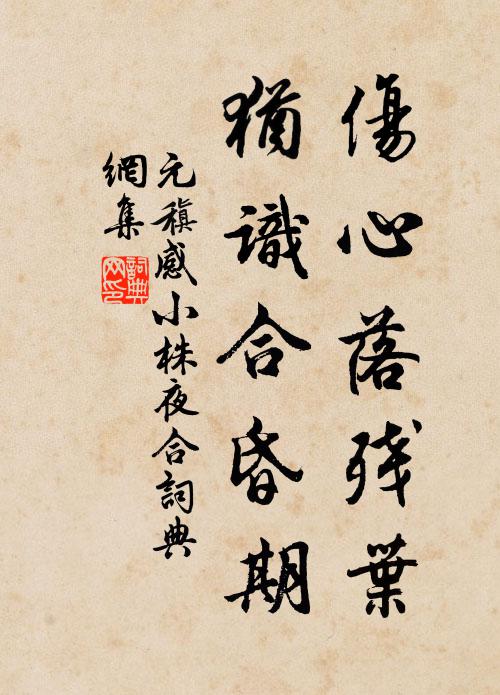 傷心落残葉
猶識合昏期
元稹感小株夜合詞典
網集
詞典
网印